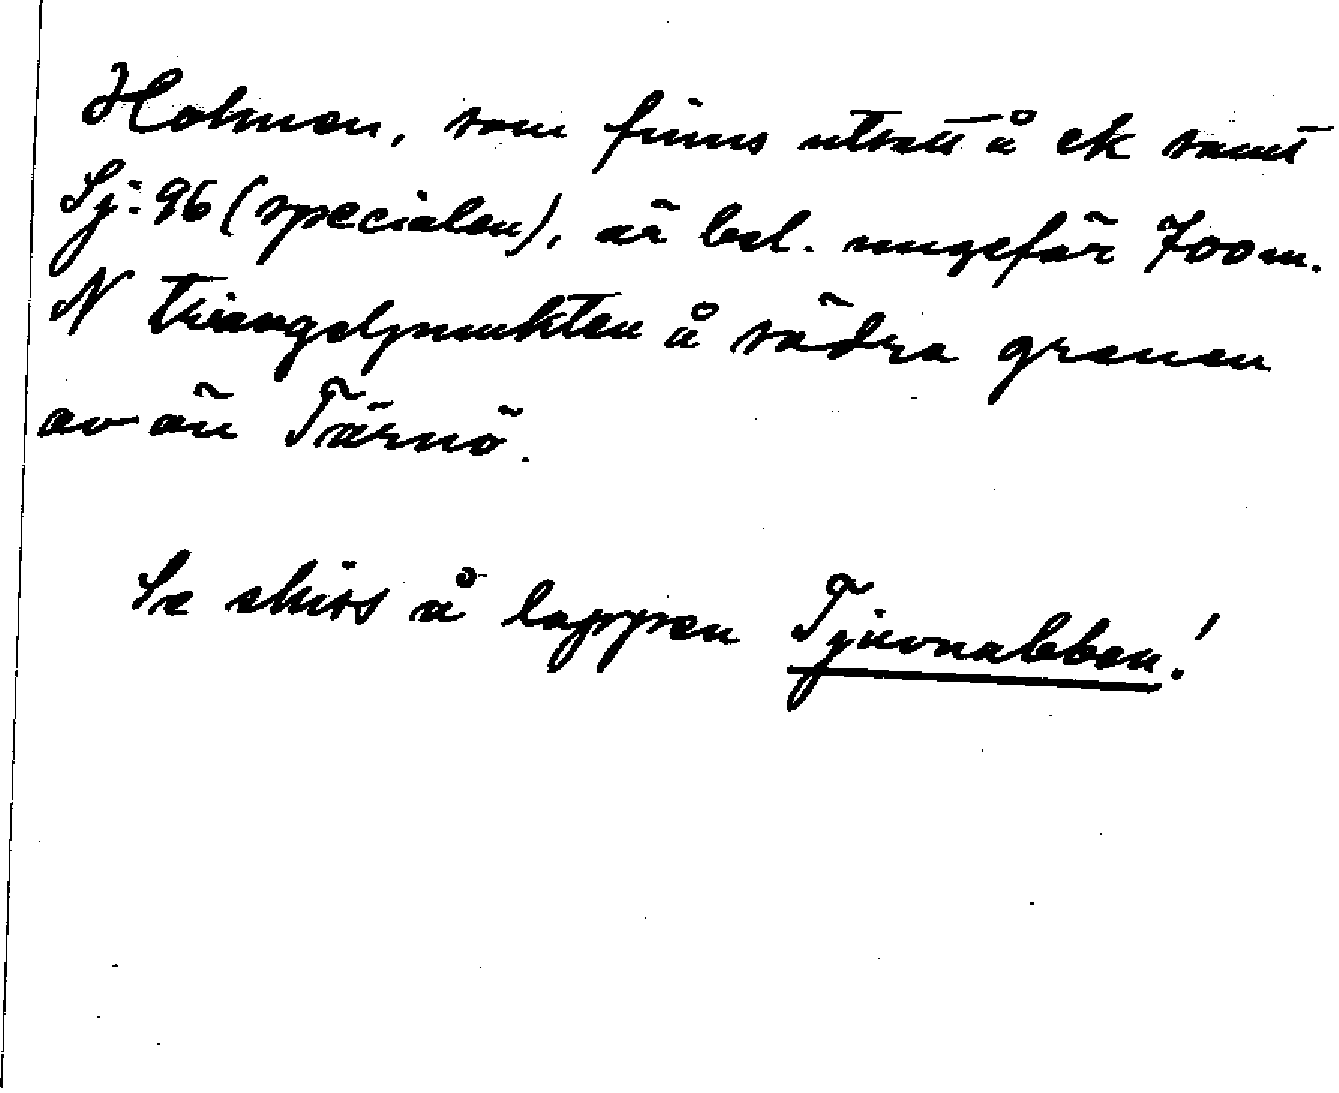 Holmen, som finns utsatt å ek samt
Sj: 96 (specialen), är bel. ungefär 700 m.
N triangelpunkten å södra grenen
av ön Tärnö.
Se skiss å lappen Tjuvnabben!